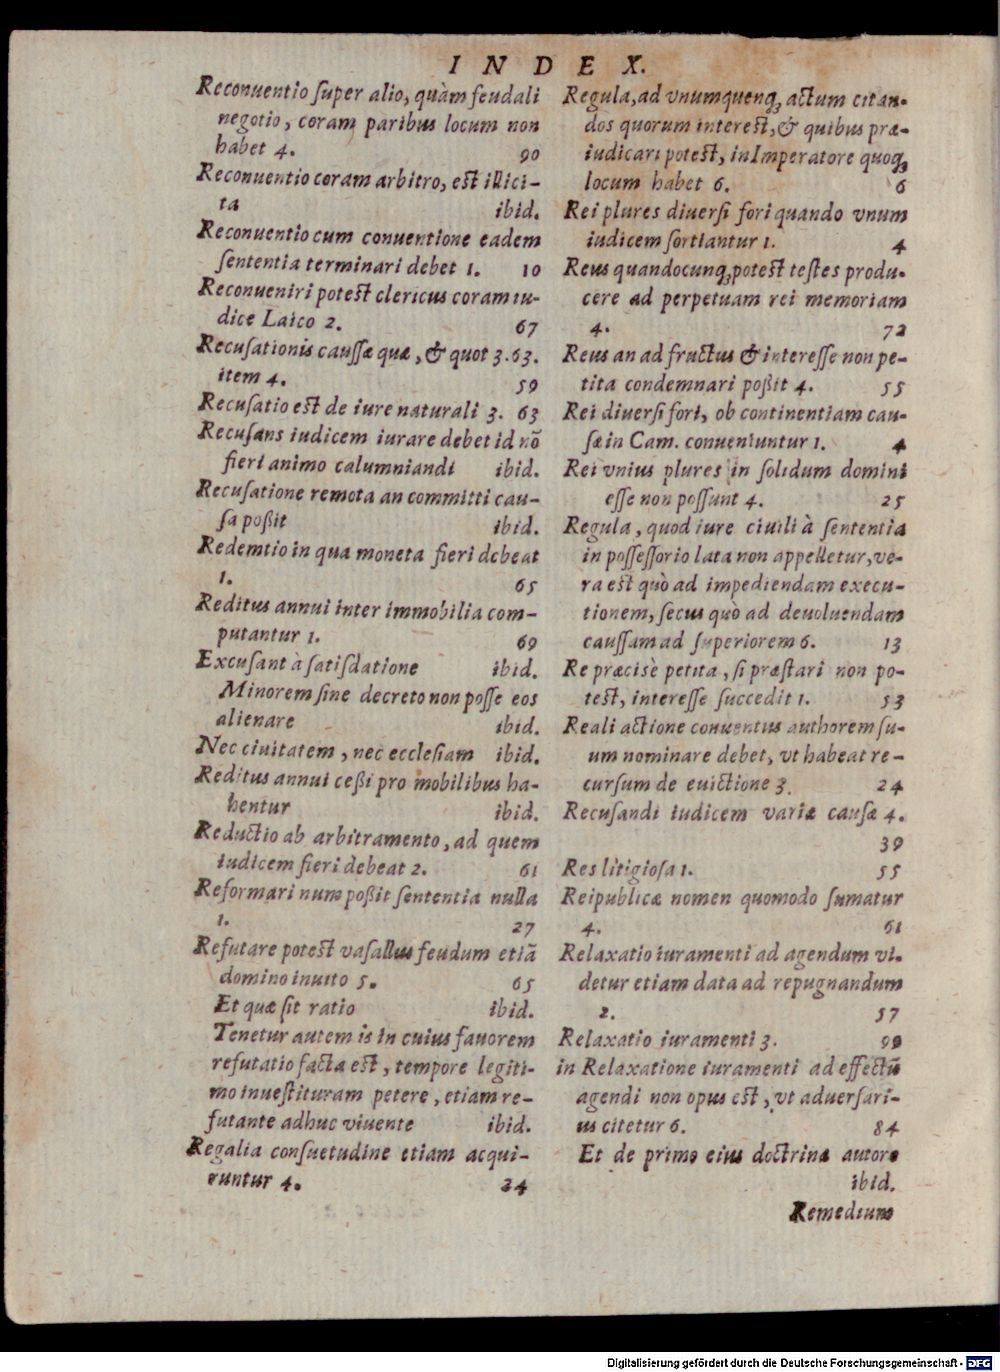 INDEX.
Reconuentio ſuper alio, quàm feudali
negotio, coram paribus locum non
habet 4. 90
Reconuentio coram arbitro, est illici-
ta ibid.
Reconuentio cum conuentione eadem
ſententia terminari debet 1. 10
Reconueniri potest clericus coram iu-
dice Laico 2. 67
Recuſationis cauſſæ quæ, & quot 3.63.
item 4. 59
Recuſatio est de iure naturali 3. 63
Recuſans iudicem iurare debet id nõ
fieri animo calumniandi ibid.
Recuſatione remota an committi cau-
ſa poßit ibid.
Redemtio in qua moneta fieri debeat
1. 65
Reditus annui inter immobilia com-
putantur 1. 69
Excuſant à ſatiſdatione ibid.
Minorem ſine decreto non poſſe eos
alienare ibid.
Nec ciuitatem, nec eccleſiam ibid.
Reditus annui ceßi pro mobilibus ha-
bentur ibid.
Reductio ab arbitramento, ad quem
iudicem fieri debeat 2. 61
Reformari num poßit ſententia nulla
1. 27
Refutare potest vaſallus feudum etiã
domino inuito 5. 65
Et quæ ſit ratio ibid.
Tenetur autem is in cuius fauorem
refutatio facta est, tempore legiti-
mo inueſtituram petere, etiam re-
futante adhuc viuente ibid.
Regalia conſuetudine etiam acqui-
runtur 4. 24
Regula, ad vnumquenq; actum citan-
dos quorum interest, & quibus præ-
iudicari potest, in Imperatore quoq;
locum habet 6. 6
Rei plures diuerſi fori quando vnum
iudicem ſortiantur 1. 4
Reus quandocunq; potest teſtes produ-
cere ad perpetuam rei memoriam
4. 72
Reus an ad fructus & intereſſe non pe-
tita condemnari poßit 4. 55
Rei diuerſi fori, ob continentiam cau-
ſæ in Cam. conueniuntur 1. 4
Rei vnius plures in ſolidum domini
eſſe non poſſunt 4. 25
Regula, quod iure ciuili à ſententia
in poſſeſſorio lata non appelletur, ve-
ra est quò ad impediendam execu-
tionem, ſecus quò ad deuoluendam
cauſſam ad ſuperiorem 6. 13
Re præcisè petita, ſi præſtari non po-
test, intereſſe ſuccedit 1. 53
Reali actione conuentus authorem ſu-
um nominare debet, vt habeat re-
curſum de euictione 3. 24
Recuſandi iudicem variæ cauſæ 4.
39
Res litigioſa 1. 55
Reipublicæ nomen quomodo ſumatur
4. 61
Relaxatio iuramenti ad agendum vi-
detur etiam data ad repugnandum
2. 57
Relaxatio iuramenti 3. 99
in Relaxatione iuramenti ad effectũ
agendi non opus est, vt aduerſari-
us citetur 6. 84
Et de primo eius doctrinæ autore
ibid.
Remedium
Digitalisierung gefördert durch die Deutsche Forschungsgemeinschaft - DFG